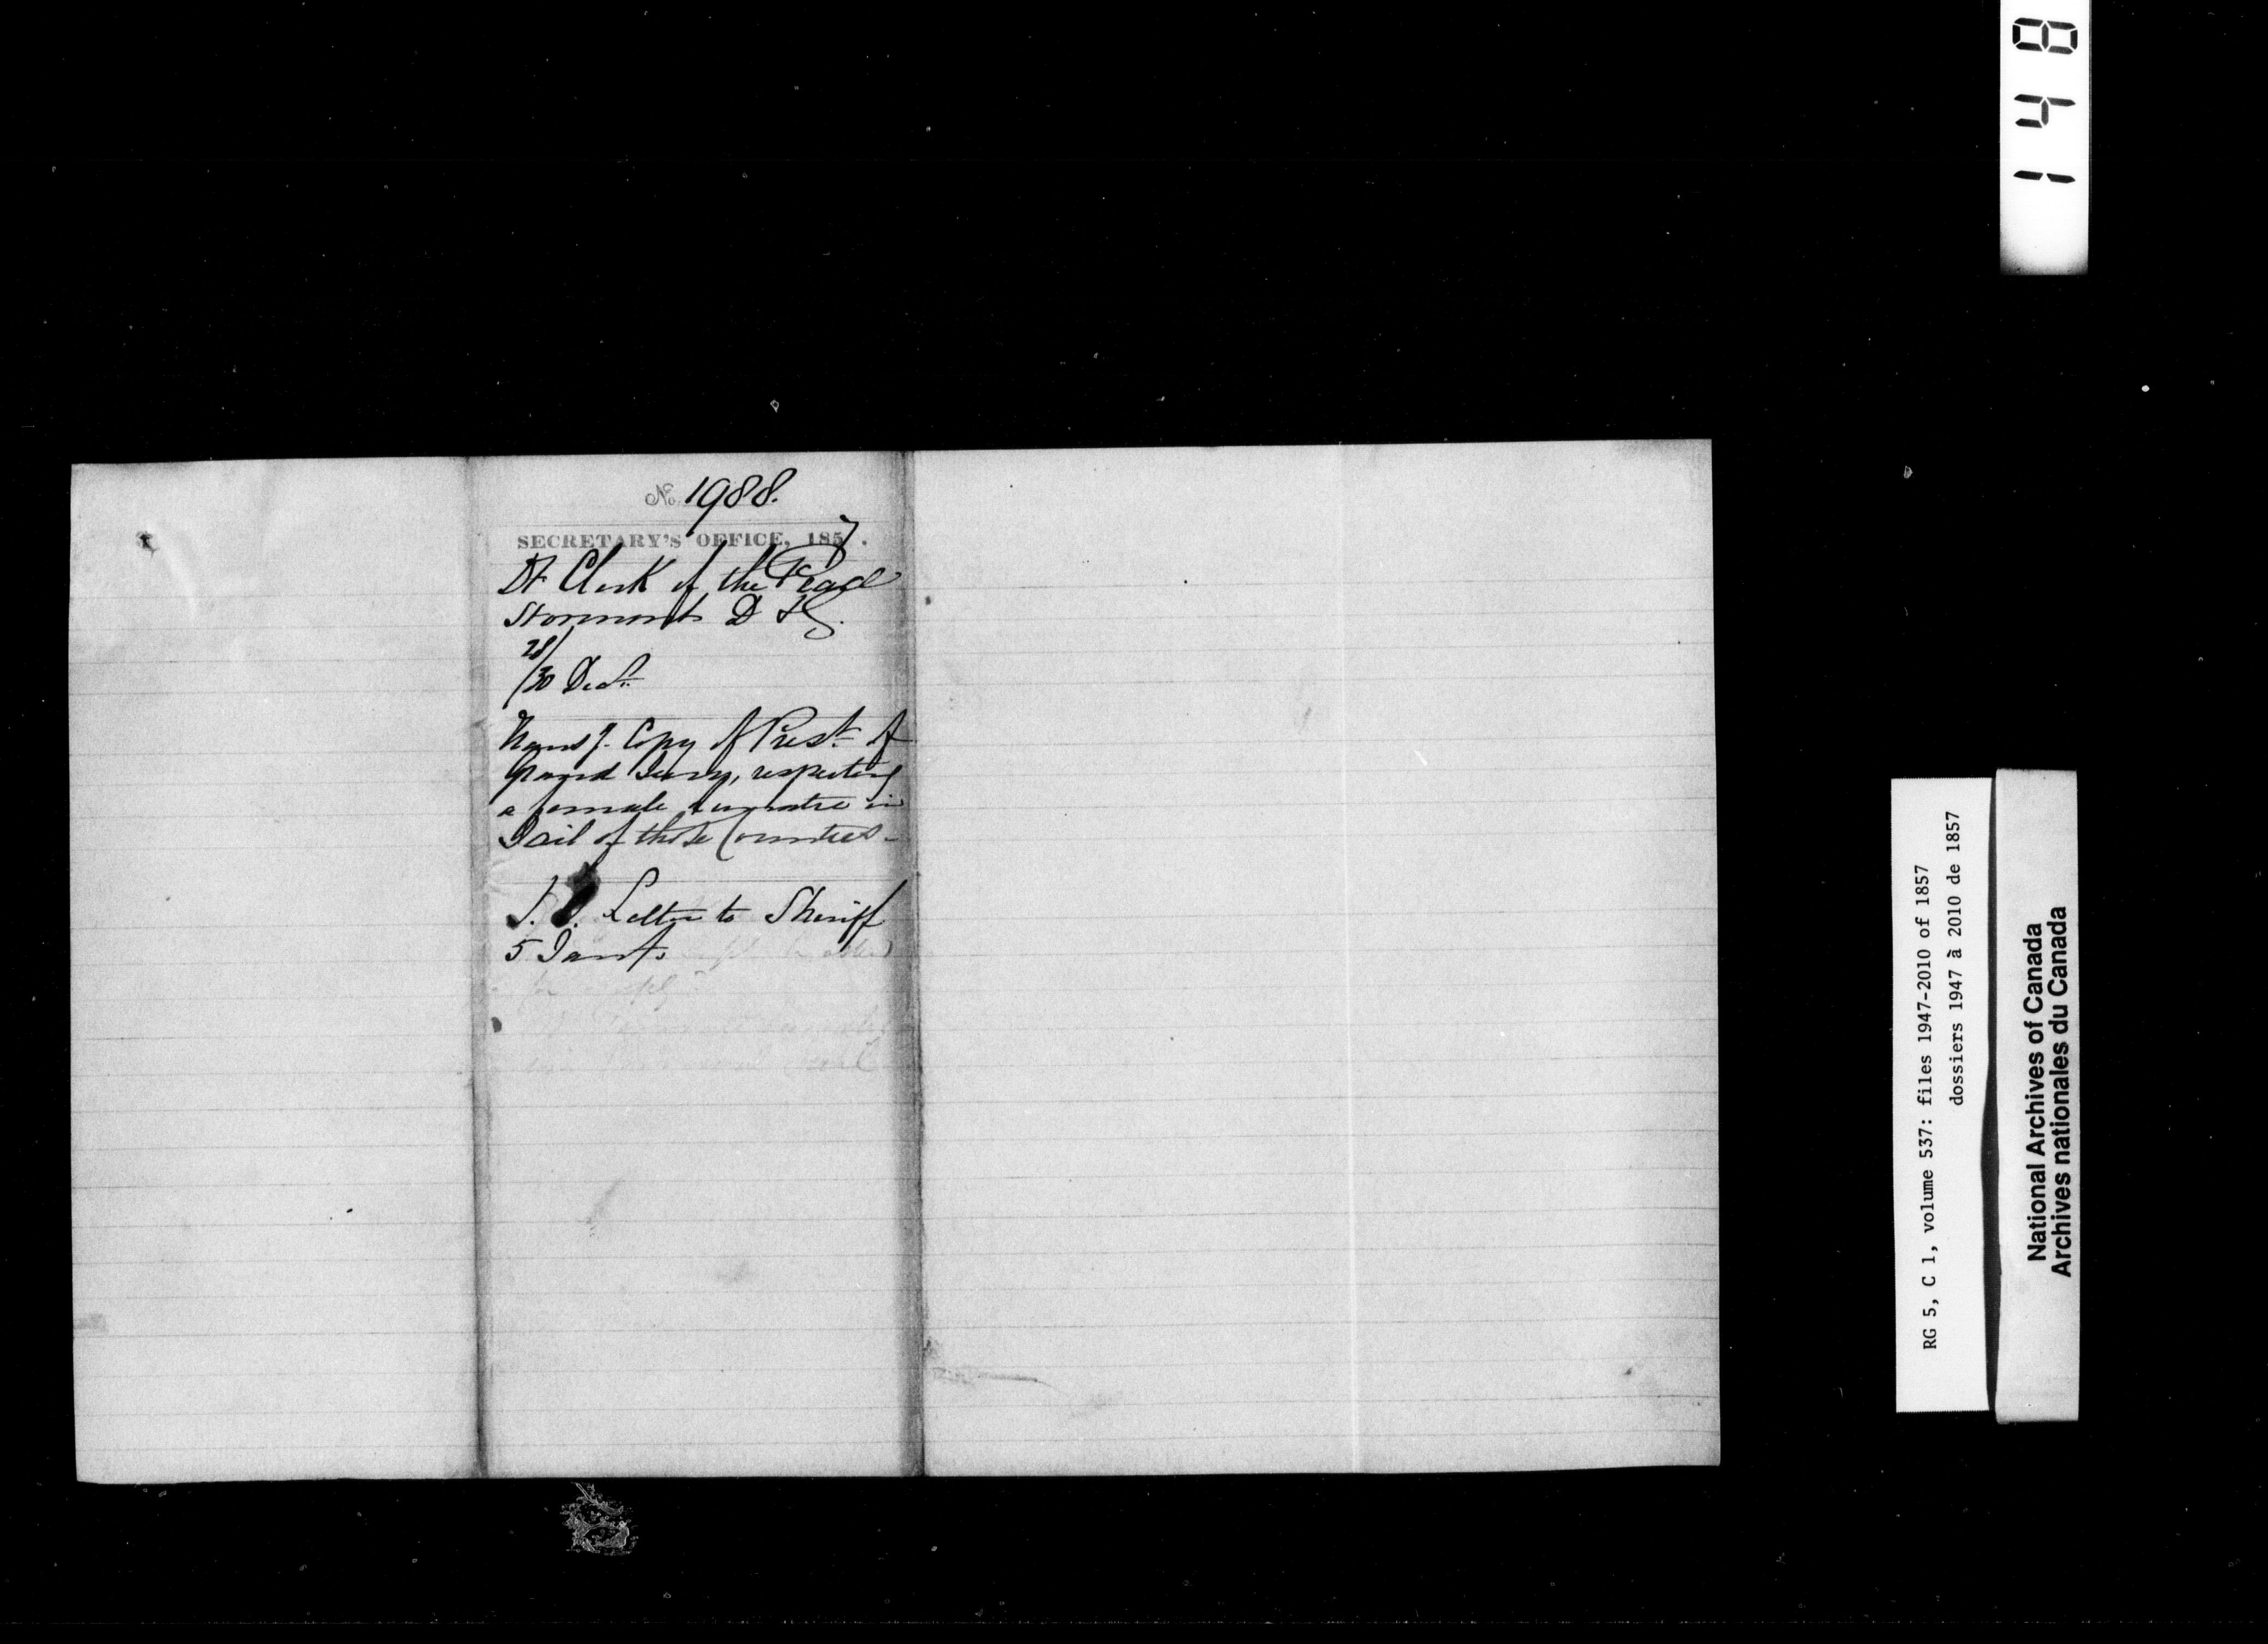 No. 1988.
SECRETARY'S OFFICE, 1857.
Dt Clerk of the Peace
Stormont D & G.
28/
/30 Decr.
Transg. Copy of Prest. of
Grand Jury, respecting
a female lunatic in
Jail of those Counties -
Letter to Sheriff
5 Jany.
148
RG 5, C 1, volume 537: files 1947-2010 of 1857
dossiers 1947 à 2010 de 1857
National Archives of Canada
Archives nationales du Canada